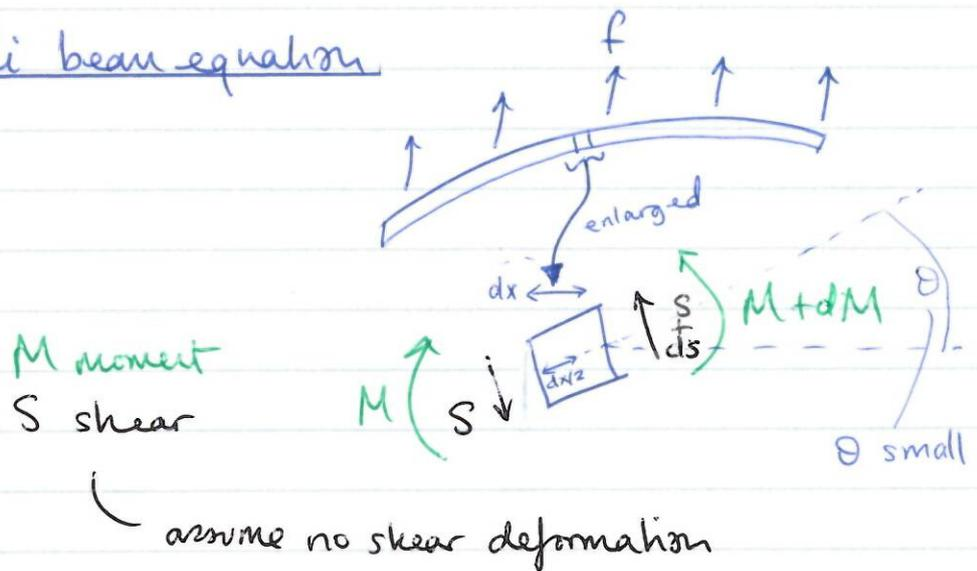 i beam equation
f
enlarged
dx
S
+
ds
M + dM
θ
dx/2
M moment
S shear
M
S
θ small
assume no shear deformation